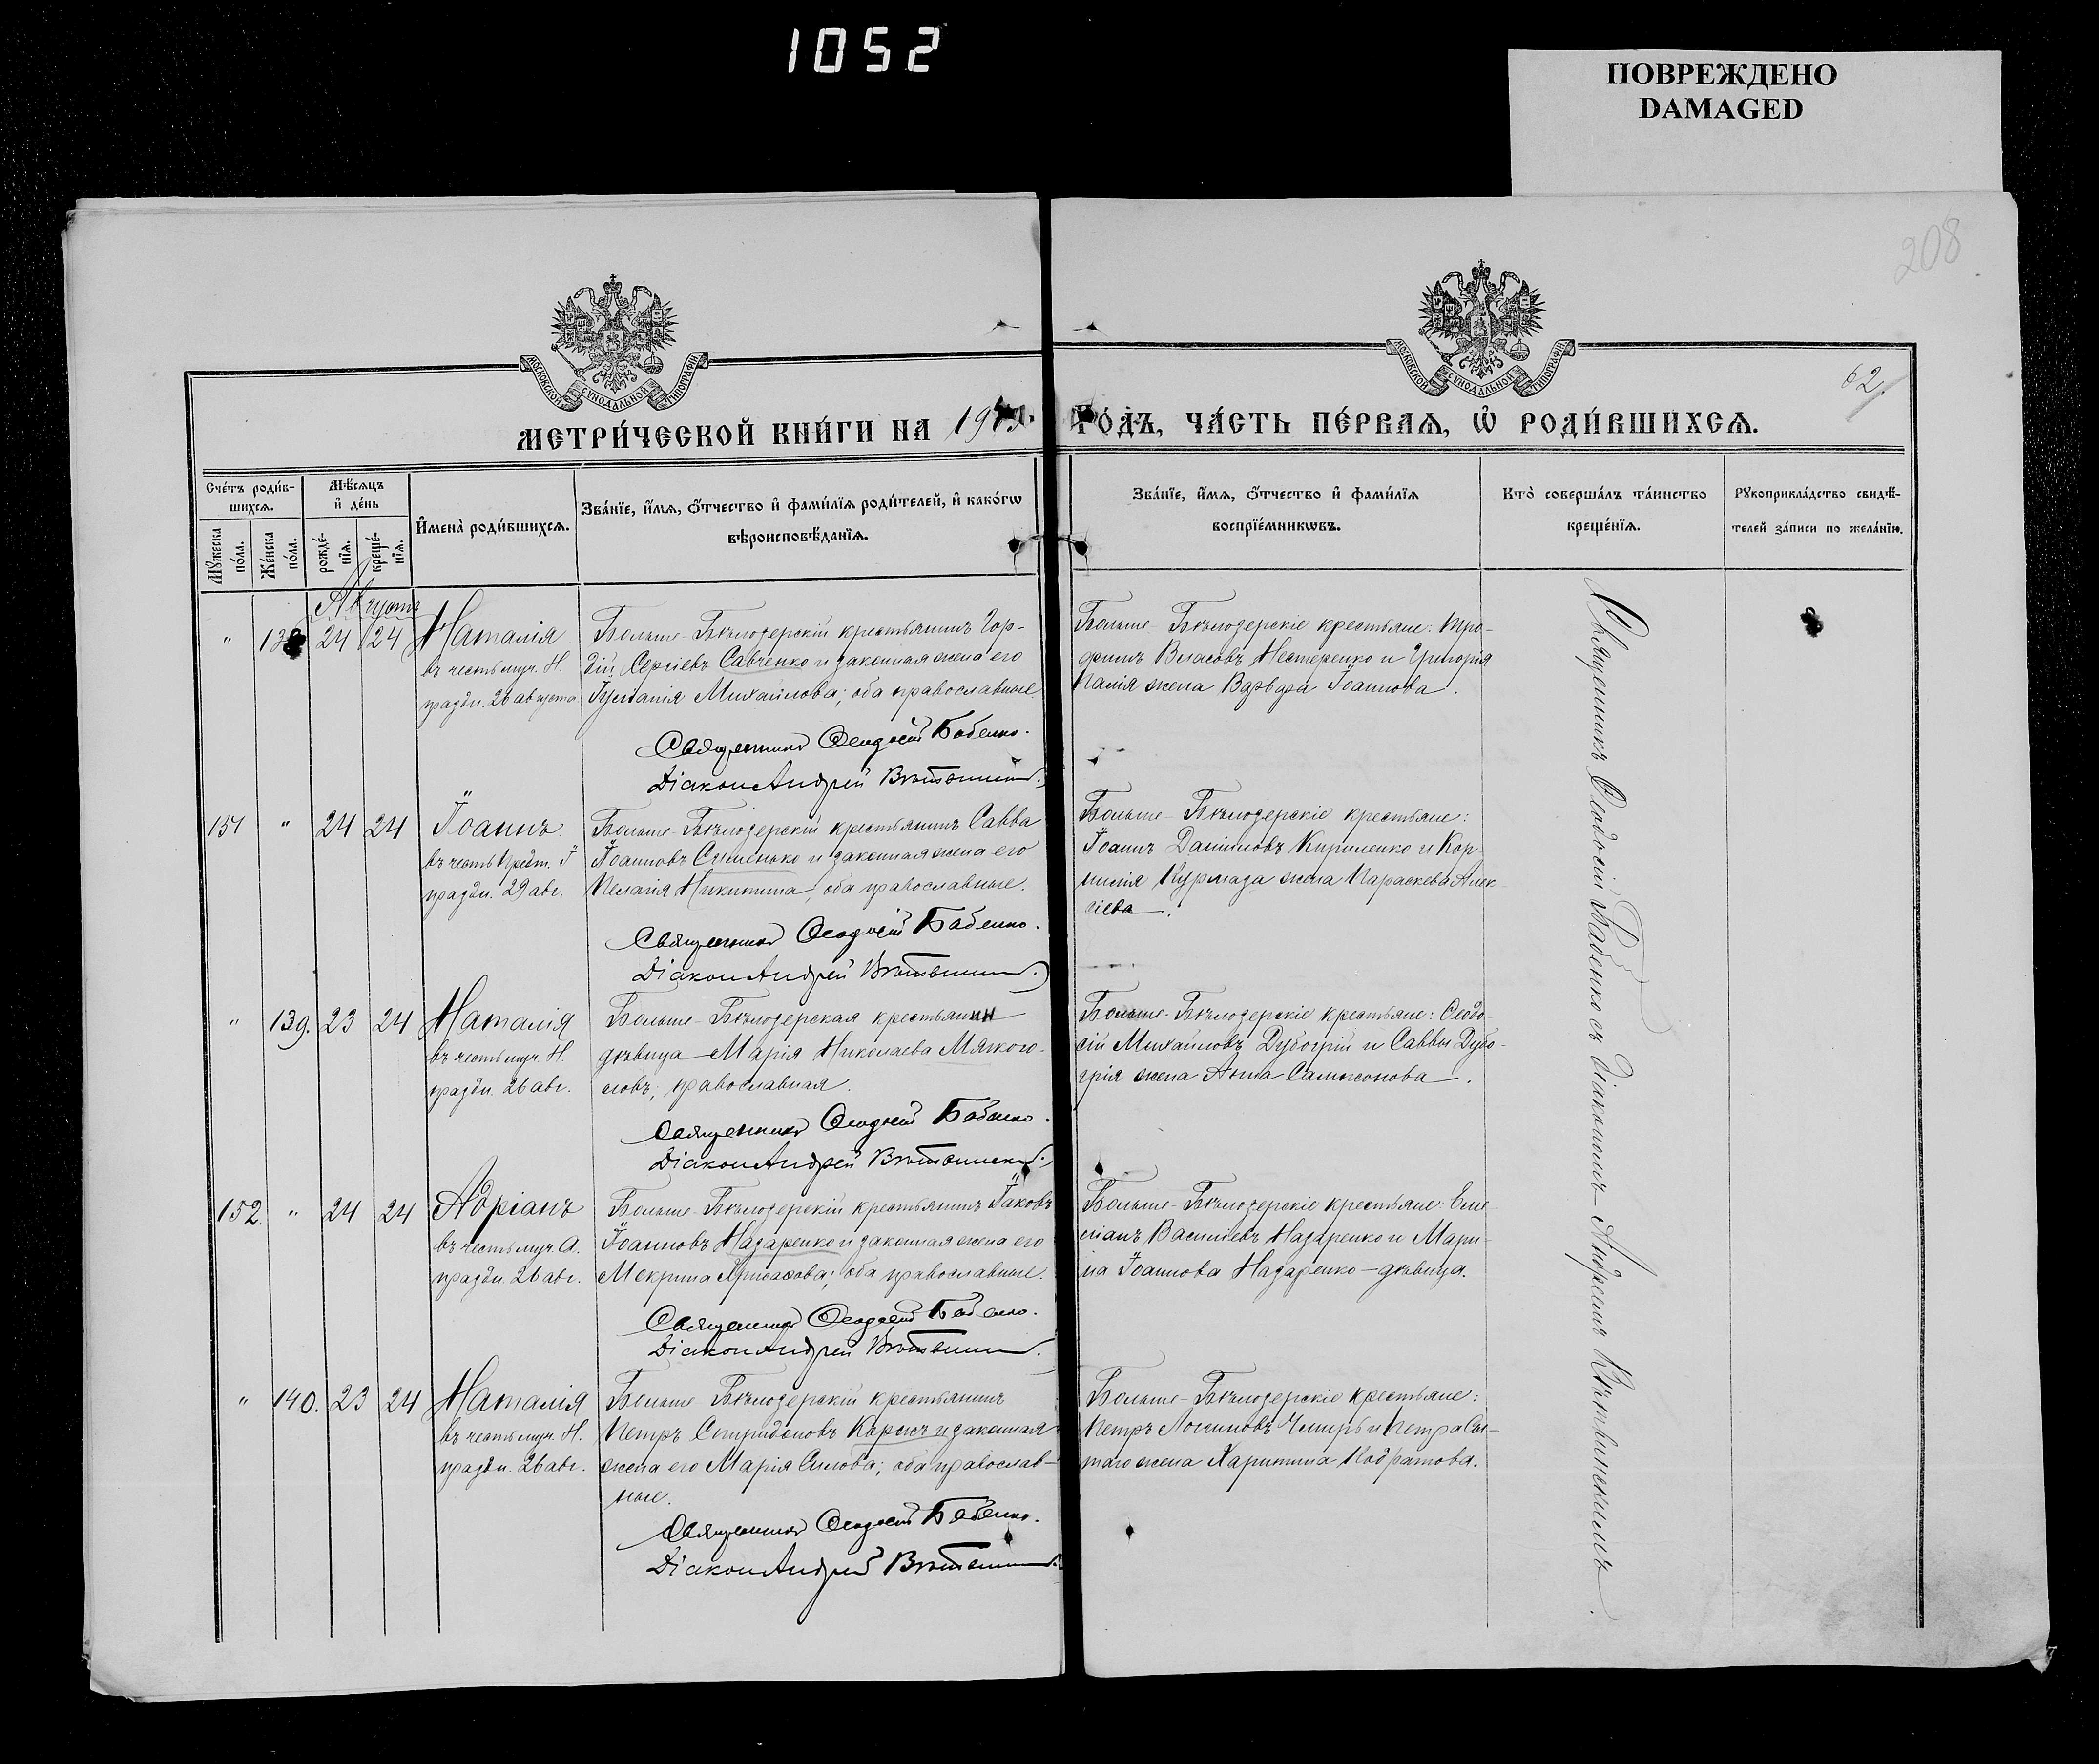 1052
ПОВРЕЖДЕНО
DAMAGED
208
62
МОСКОВСКОЙ СѴНОДАЛЬНОЙ ТИПОГРАФІИ
МОСКОВСКОЙ СѴНОДАЛЬНОЙ ТИПОГРАФІИ
МЕТРИ́ЧЕСКОЙ КНИ́ГИ НА 19
ГО́ДЪ, ЧА́СТЬ ПЕ́РВАѦ, Ѡ҆ РОДИ́ВШИХСѦ.
Сче́тъ роди́в-
шихсѧ.
Мꙋ́жеска
по́ла.
Же́нска
по́ла.
Мѣ́сѧцъ
и҆ де́нь
рожде́-
нїѧ.
креще́-
нїѧ.
И҆мена̀ роди́вшихсѧ.
Зва́нїе, и҆́мѧ, ѻ҆́тчество и҆ фами́лїѧ роди́телей, и҆ како́гѡ
вѣроисповѣ́данїѧ.
Зва́нїе, и҆́мѧ, ѻ҆́тчество и҆ фами́лїѧ
воспрїе́мникѡвъ.
Кто̀ соверша́лъ та́инство
креще́нїѧ.
Рꙋкоприкла́дство свидѣ́-
телей за́писи по жела́нїю.
Августъ
" 138 24 24 Наталія
въ честь муч. Н.
праздн. 26 августа
Больше-Бѣлозерскій крестьянинъ Гор-
дій Сергіевъ Савченко и законная жена его
Михайлова; оба православные
Священникъ Ѳеодосій Бабенко.
Діаконъ Андрей
Больше-Бѣлозерскіе крестьяне: Тро-
фимъ Власовъ Нестеренко и Григорія
Палія жена Варвара Іоаннова.
151 " 24 24 Іоаннъ
въ честь Предт. І
праздн. 29 авг.
Больше-Бѣлозерскій крестьянинъ Савва
Іоанновъ и законная жена его
Пелагія Никитина; оба православные.
Священникъ Ѳеодосій Бабенко.
Діаконъ Андрей
Больше-Бѣлозерскіе крестьяне:
Іоаннъ Даніиловъ Кириленко и Кор-
нилія жена Параскева Алек-
сіева.
" 139. 23 24 Наталія
въ честь муч. Н.
праздн. 26 авг.
Больше-Бѣлозерская крестьянин
дѣвица Марія Николаева Мягкого-
ловъ; православная.
Священникъ Ѳеодосій Бабенко.
Діаконъ Андрей
Больше-Бѣлозерскіе крестьяне: Ѳеодо-
сій Михайловъ Дубогрій и Саввы Дубо-
грія жена Анна Сампсонова.
152. " 24 24 Адріанъ
въ честь муч. А.
праздн. 26 авг.
Больше-Бѣлозерскій крестьянинъ Іаковъ
Іоанновъ Назаренко и законная жена его
Мокрина; оба православные.
Священникъ Ѳеодосій Бабенко.
Діаконъ Андрей
Больше-Бѣлозерскіе крестьяне: Еме-
ліанъ Васильевъ Назаренко и Мари-
на Іоаннова Назаренко-дѣвица.
" 140. 23 24 Наталія
въ честь муч. Н.
праздн. 26 авг.
Больше-Бѣлозерскій крестьянинъ
Петръ Спиридоновъ и законная
жена его Марія Силова; оба православ-
ные.
Священникъ Ѳеодосій Бабенко.
Діаконъ Андрей
Больше-Бѣлозерскіе крестьяне:
Петръ Логиновъ и Петра Сы-
таго жена Харитина Кодратова.
Священникъ Ѳеодосій Бабенко съ Діакономъ Андреемъ